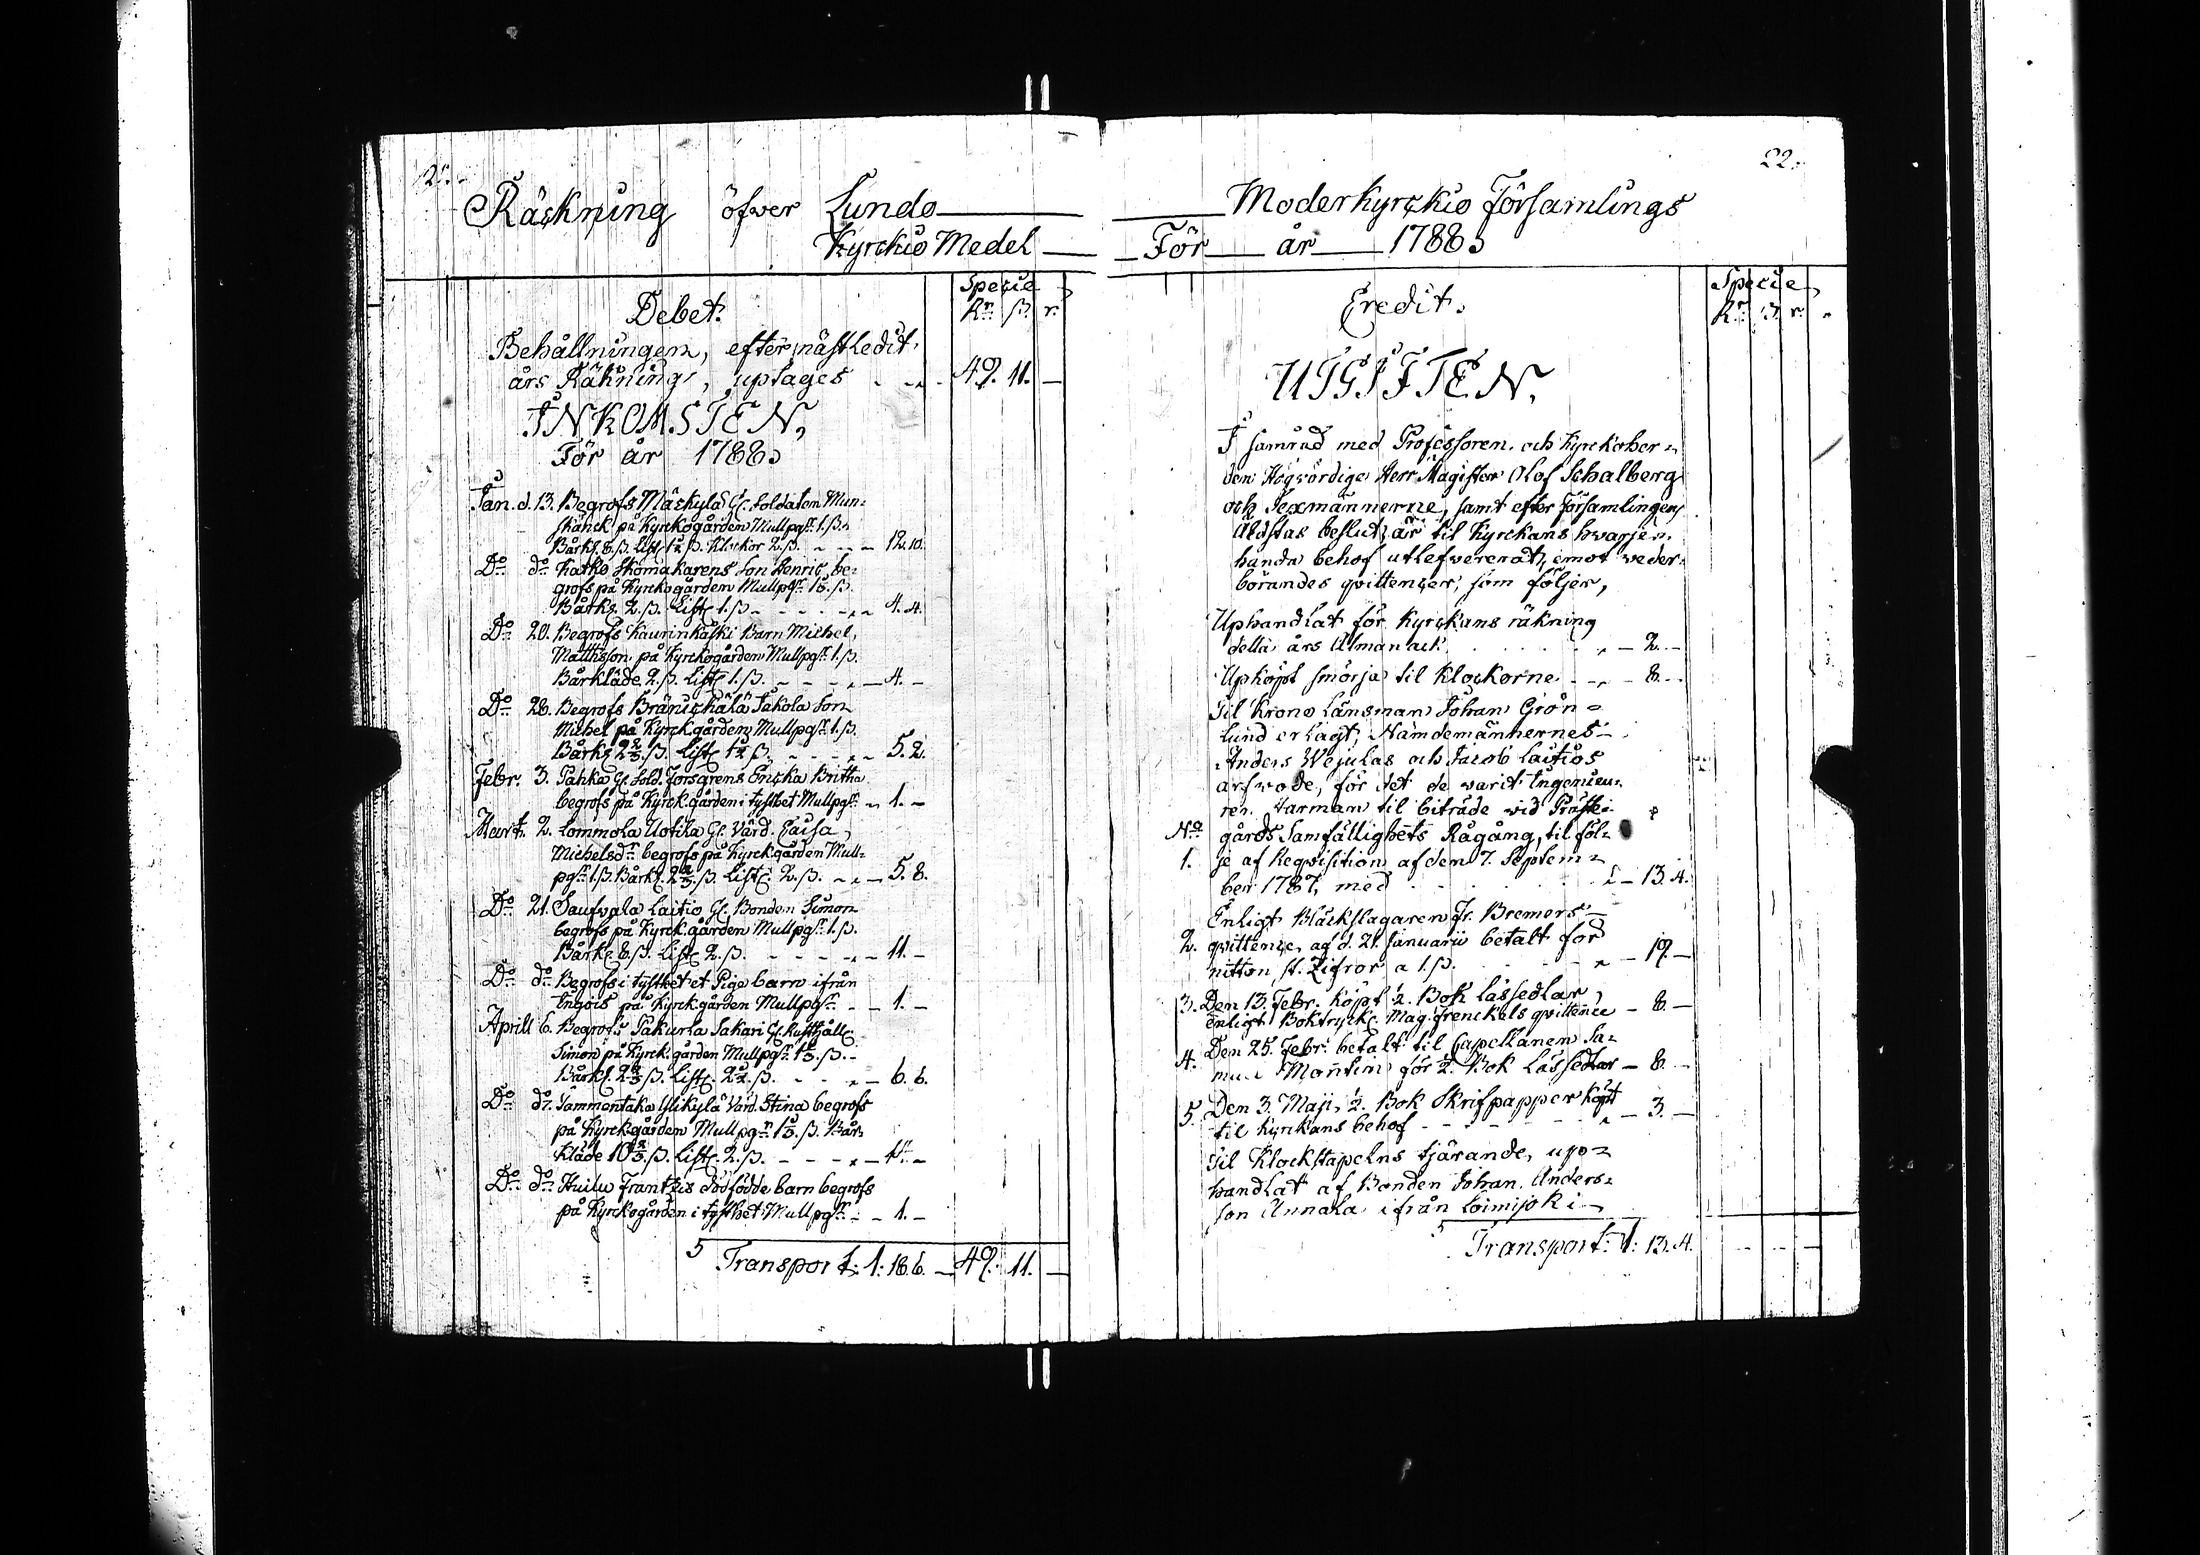 22.
Räckning öfver Lundo Moderkyrckio Församlings
Kyrckio Medel För år 1788.
Debet.
Specie
Rr. ß. r.
Behållningen, efter nästledit.
års Räknings, uptages 49. 11. —
INKOMSTEN,
För år 1788.
Jan. d. 13. Begrofs Mäckylä Gl. Soldaten Mun-
skänck på Kyrckogården Mullpgr. 1. ß.
Bårkl. 8. ß. List 1½ ß. Klockor 2. ß. 12. 10.
Do do Katko Skomakarens Son Henric, be-
grofs på Kyrckogården Mullpgr.
Bårkl. 2. ß. List. 1. ß 4. 4.
Do 20. Begrofs Kaurinkoski Barn Michel,
Matthsson på Kyrckogården Mullpgr. 1. ß.
Bårkläde 2. ß. List. 1. ß. 4. —
Do 28. Begrofs Jakola Son
Michel på Kyrckgården Mullpgr. 1. ß.
Bårkl. 2⅔ ß. List 1½ ß. 5. 2.
Febr. 3. Pahka Gl. Sold. Forsgrens Encka Britha
begrofs på Kyrck.gården i tysthet Mullpgr. 1. —
Mart. 2. Lommola Uotila Gl. Värd. Caisa,
Michelsdr. begrofs på Kyrck.gården Mull-
pgr. 1. ß. Bårkl. 2⅔. ß. List. 2. ß. 5. 8.
Do 21. Saustvala Laitio Gl. Bonden Simon
begrofs på Kyrck.gården Mullpgr. 1. ß.
Bårkl. 8. ß. List. 2. ß. 11. —
Do do Begrofs i tysthet et Pige barn ifrån
Engois på Kyrck.gården Mullpgr. 1. —
Aprill 6. Begrofs Pakurla Sakari Gl. Rusthåll.
Simon på Kyrck.gården Mullpgr. 1⅓. ß.
Bårkl. 2⅔ ß. List. 2½. ß. 6. 6.
Do do Tammentaka Ylikylä Värd. Stina begrofs
på Kyrck.gården Mullpgr. 1⅓. ß. Bår-
kläde 10⅔. ß. List. 2. ß. 14. —
Do do Huilu Frantzis dödfödde barn begrofs
på Kyrckogården i tysthet Mullpgr. 1. —
Transport: 1: 18. 6. — 49. 11. —
Credit.
Specie
Rr. ß. r.
UTGIFTEN.
I samråd med Professoren och Kyrckoher-
den Högvördige Herr Magister Olof Schalberg
och Sexmännerne, samt efter Församlingens
Äldstas beslut, är til Kyrckans hvarje-
handa behof utlefvererat, emot veder-
börandes qvittencer, som följer,
Uphandlat för Kyrckans räkning
detta års Almanach 2. —
Upköpt smörja til Klockorne 8. —
Til Krono Länsman Johan Grön-
lund erlagt, Nämdemännernes
Anders Wejulas och Jacob Laitios
arfvode, för det de varit Ingenieu-
ren Harman til biträde vid Präste-
No gårds Samfällighets Rågång, til föl-
1. je af Reqvisition af den 7. Septem-
ber 1787, med 13. 4.
Enligt Bläckslagaren Fr. Bremers
2. qvittence, af d. 21. Januarii betalt för
nitton st. Zifror a 1. ß. 19. —
3. Den 13. Febr. köpt ½. Bok låssedlar,
enligt Boktryck. Mag. Frenckels qvittence 8. —
4. Den 25. Febr. betalt til Capellanen Sa-
Montin för ½. Bok Låssedlar 8. —
5. Den 3. Maji, ½. Bok Skrifpapper köpt
til Kyrckans behof 3. —
Til Klockstapelns tjärande, up-
handlat af Bonden Johan Anders-
son Annala ifrån Loimijoki
Transport: 1: 13. 4.